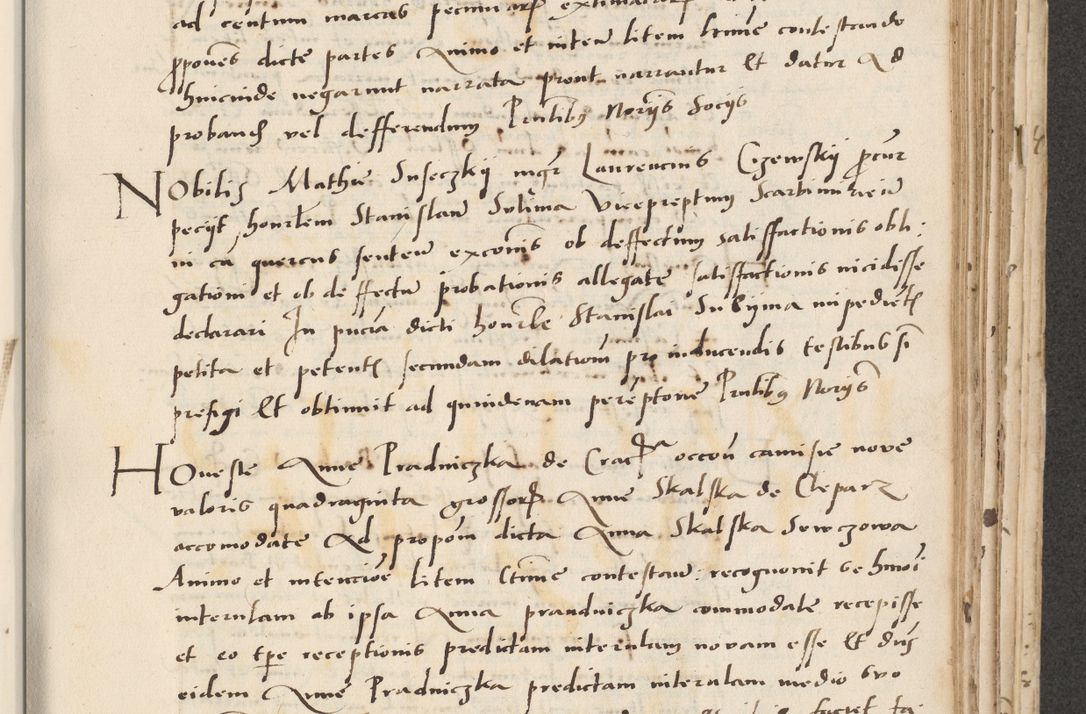 ad centum marcas pecuniarp extimatarp
ꝓpones dicte partes Animo et inten litem ltime contestando
huicinde negarunt narrata prout narrantur Et datur Ad
probandum vel defferendum Pntibus Noriis Sociis
NObilis Mathie Suseczkij mgr Laurencius Czewskij ꝓcur
peciit honrlem Stanislaum Sulima Viceprepitum Scarbimirien
in ca quercus senten exconis ob deffectum satisffactionis obli:
gationi et ob deffectu probationis allegate satisffactionis incidisse
declarari In pncia dicti honrle Stanislai Sulijma impedient
petita et petent secundam dilationem pro inducendis testibus si
prefigi Et obtinuit ad quindenam peremptorie Pntibus Noriis
HOneste Anne Pradniczka de Crac occon camisie nove
valoris quadraginta grossorp Anne Skalska de Clepar
accomodate Ad propom dicta Anna Skalska Sewczowa
Animo et intencioe litem ltime contestan: recognovit se hmoi
interulam ab ipsa Anna prandniczka commodate recepisse
et eo tpe receptionis predictam interulam novam esse Et dns
eidem Anne Pradniczka predictam interulam medio svo